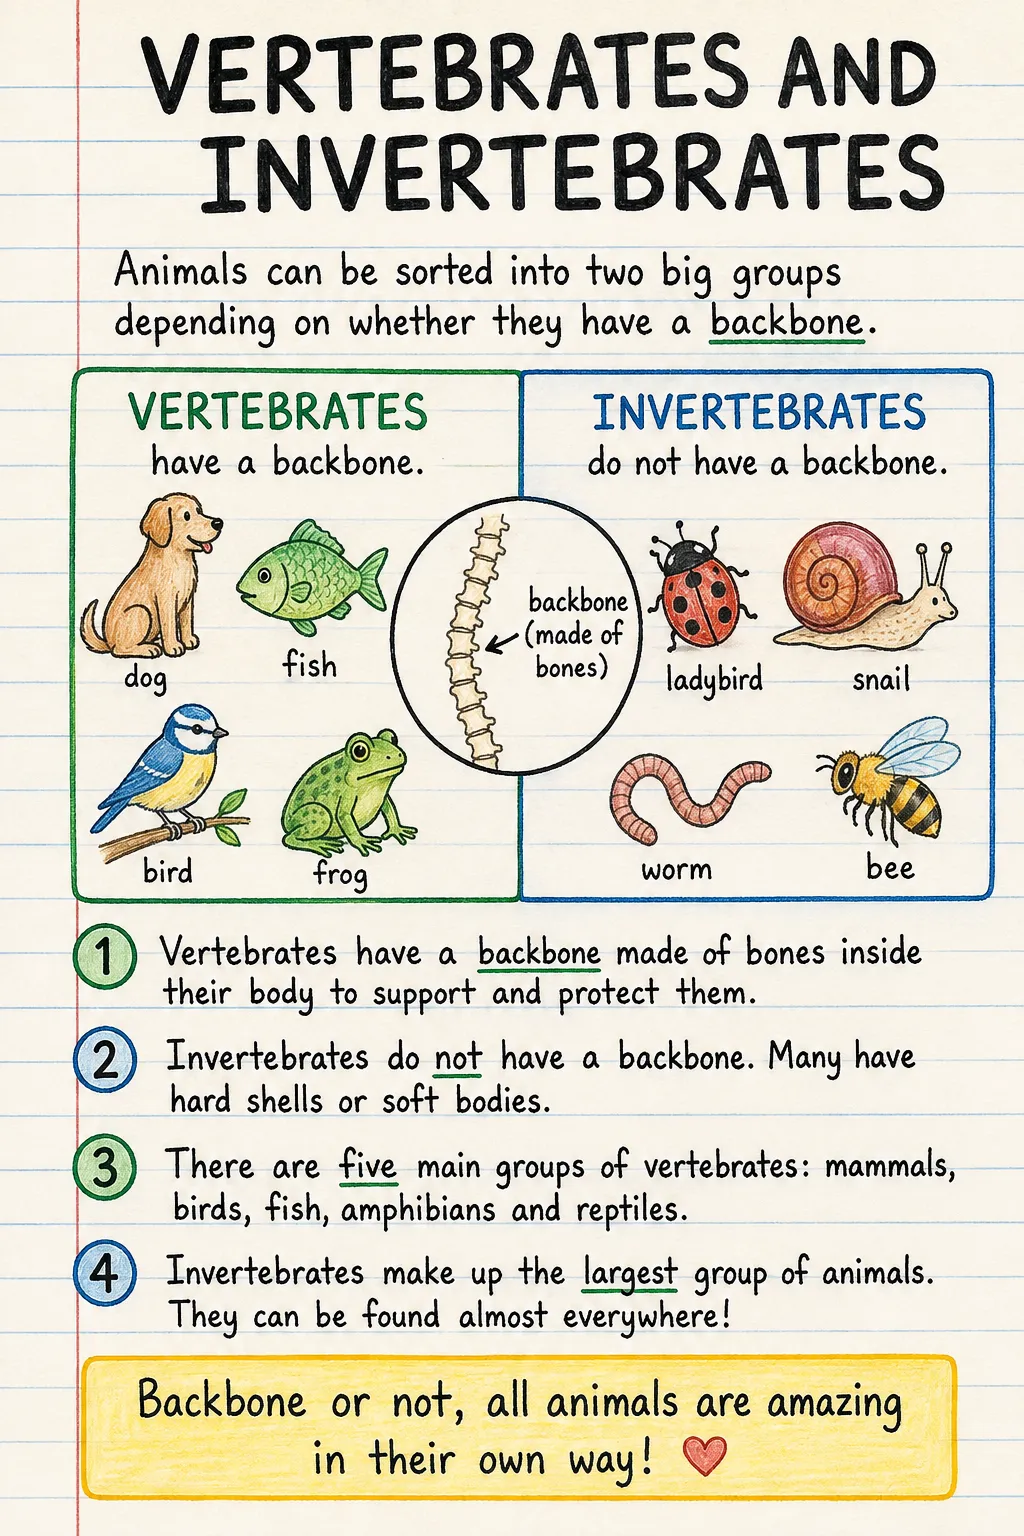 VERTEBRATES AND
INVERTEBRATES
Animals can be sorted into two big groups
depending on whether they have a backbone.
VERTEBRATES
have a backbone.
INVERTEBRATES
do not have a backbone.
dog
fish
bird
frog
backbone
(made of
bones)
ladybird
snail
worm
bee
1 Vertebrates have a backbone made of bones inside
their body to support and protect them.
2 Invertebrates do not have a backbone. Many have
hard shells or soft bodies.
3 There are five main groups of vertebrates: mammals,
birds, fish, amphibians and reptiles.
4 Invertebrates make up the largest group of animals.
They can be found almost everywhere!
Backbone or not, all animals are amazing
in their own way!